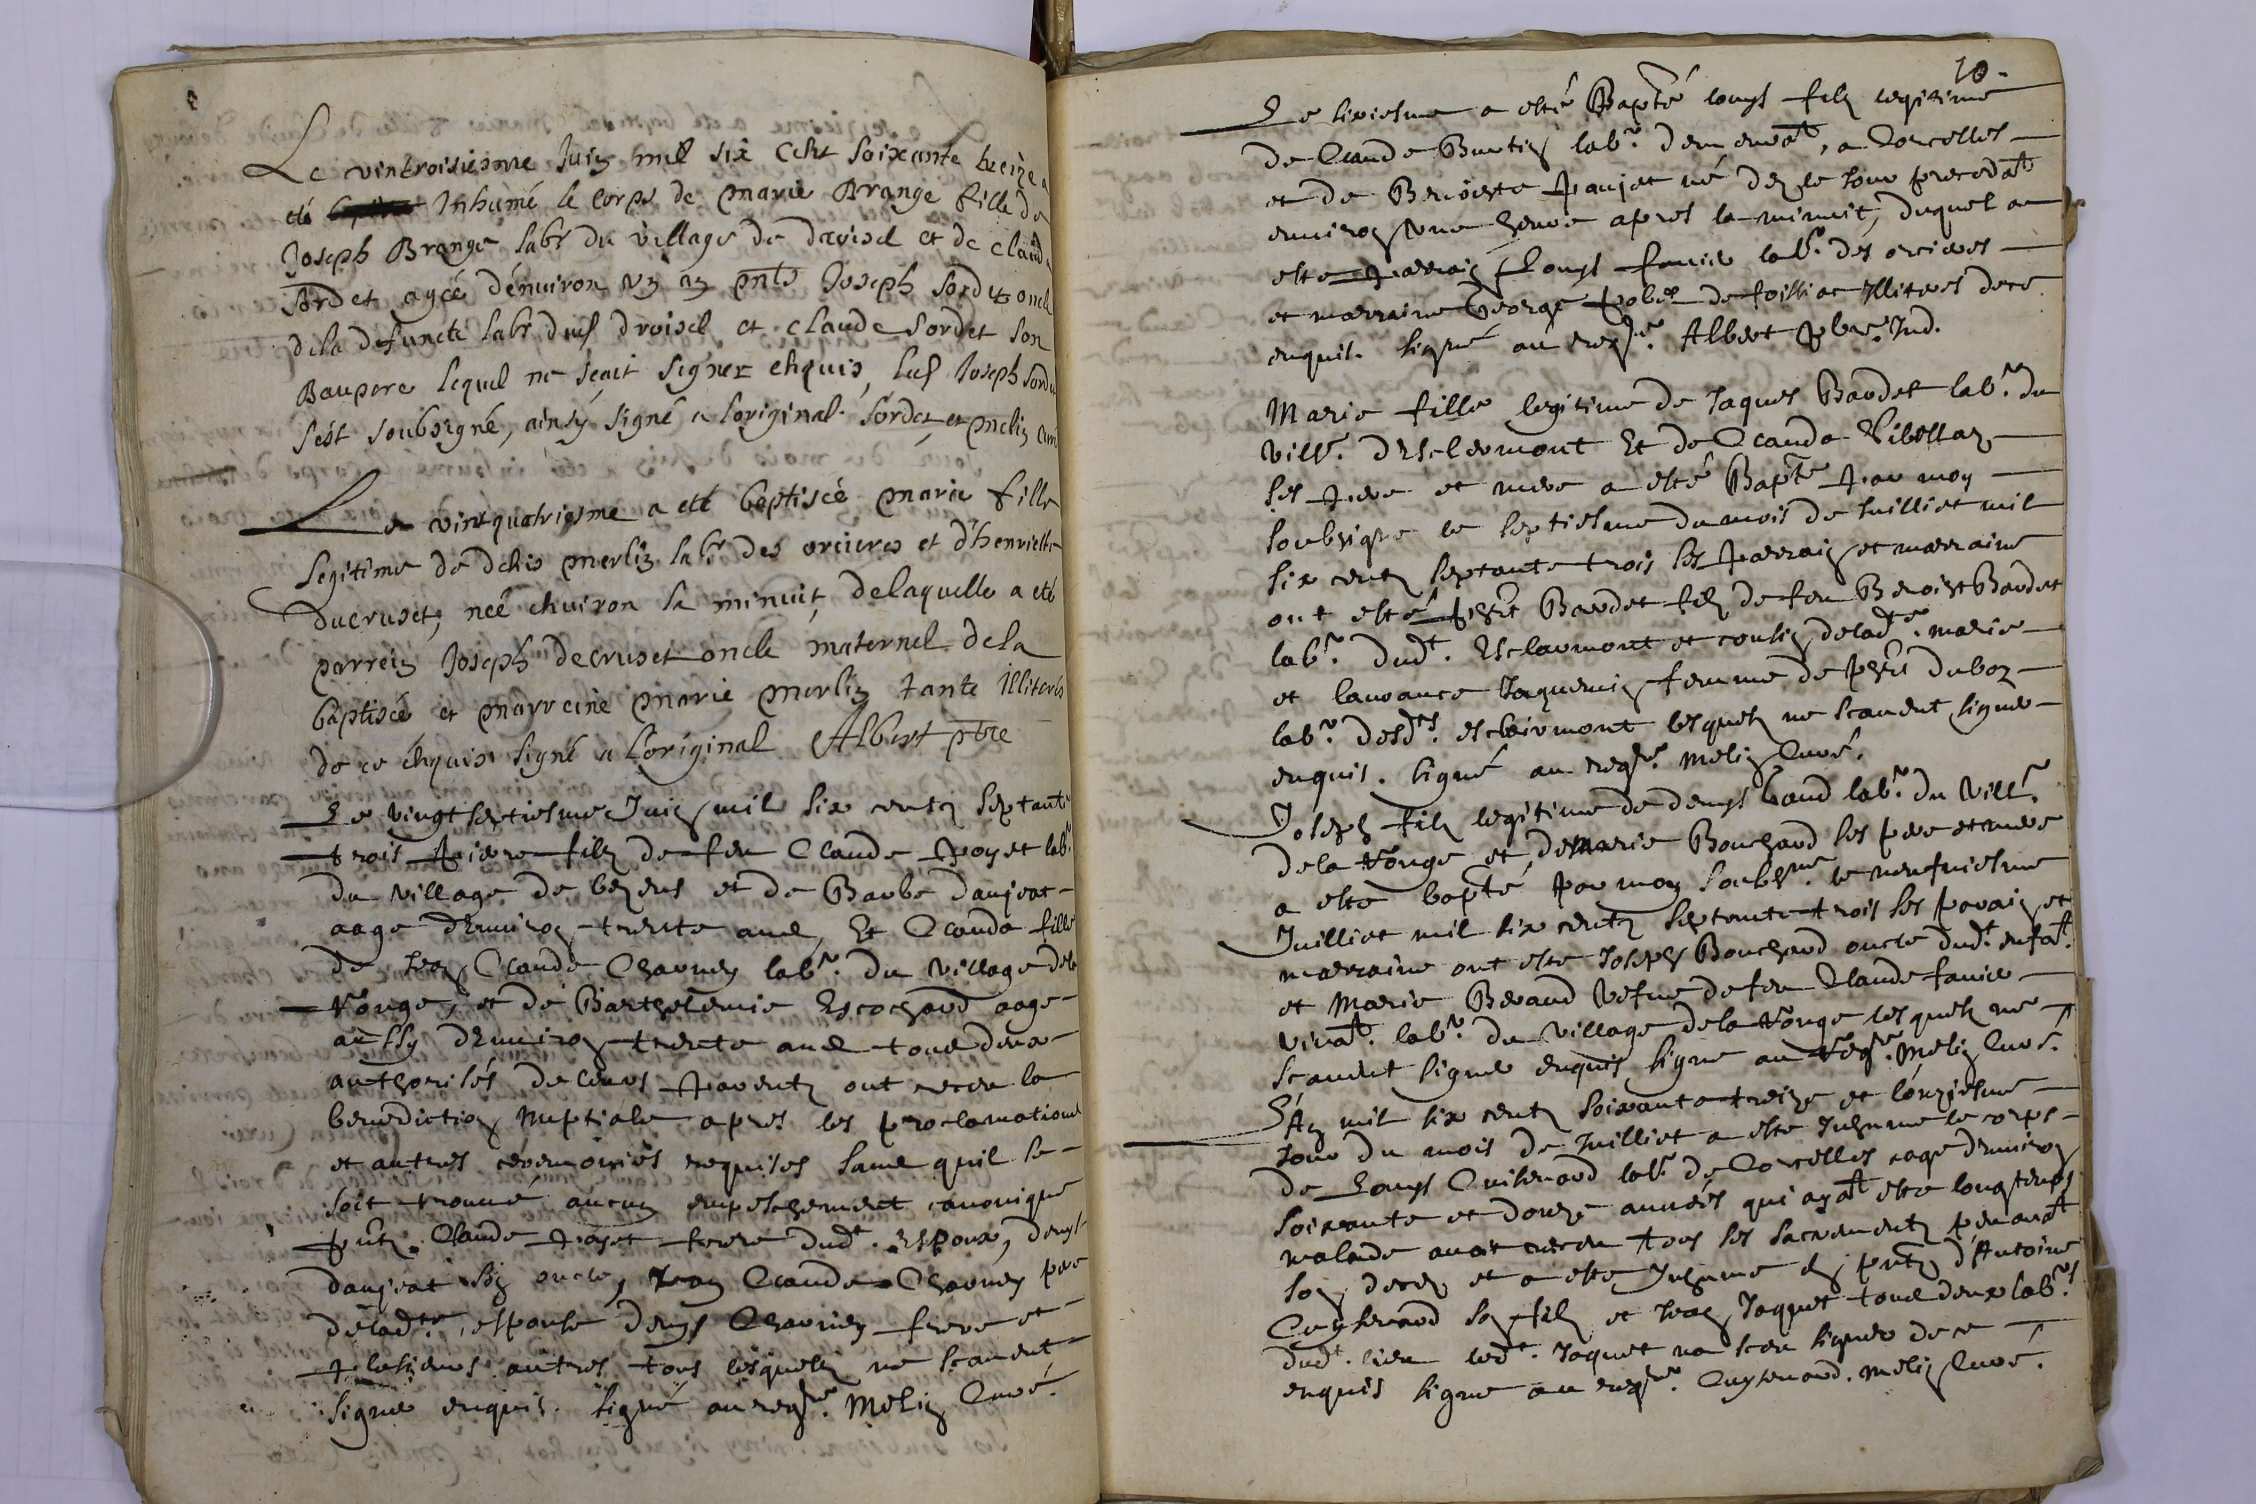 Le vintroisiesme Juin mil six Cent soixante treize a
eté Inhumé le corps de marie Brange fille de
Joseph Brange labr du village de et de claud
Sordet agée d'environ un an pnts Joseph Sordet oncle
de la defuncte labr dud droisel et claude Sordet son
Baupere lequel ne sçait signer enquis, led Joseph Sordet
sest soubsigné, ainsy signé a l'original Sordet et melin curé
Le vintquatriesme a eté baptiseé marie fille
legitime de denis merlin labr des orcieres et d'henriette
ducruset, neé environ la minuit, delaquelle a eté
parrein Joseph decruset oncle maternel de la
baptiseé et marreine marie merlin tante Illiterés
de ce enquis signé a l'original Albert ptre
Le vingt septiesme Juin mil six centz septante
trois pierre filz de feu Claude poyet labr
du village de et de Barbe daujeat
aagé d'environ trente ans, Et Claude fille
de Jean Claude Charvey labr. du village dela
Vouge, et de Barthelemie Escochard aagé
aussy d'environ trente ans tous deux
authorisés de leurs parentz ont receu la
benediction Nuptiale apres les proclamations
et autres ceremonies requises sans quil se
soit trouvé aucun empeschement canonique
pntz. Claude poyet frere dudt. Espoux, denys
daujeat son oncle, Jean Claude Charvey pere
deladte. espouse denys Charvey frere et
plusieurs autres tous lesquels ne scavent
signer enquis. signé au regre. Melin Curé.
10.
Le sixiesme a esté Bapté louys filz legitime
de Claude Burtin labr. demeurat, a Corcelles
et de Benoiste paujet né dez le jour precedat
environ une heure apres la minuit, duquel a
esté parrain Louys favier labr. des orcieres
et marraine George de Illiteres de ce
enquis. signé au regre. Albert pbre. Ind.
Marie fille legitime de Jaques Baudet labr. du
villr. d'Esclermont Et de Claude
ses pere et mere a esté Bapté par moy
soubsigné le septiesme du mois de Juilliet mil
six centz septante trois ses parrain et marraine
ont esté Baudet filz de feu Benoist Baudet
labr. dudt. Esclarmont et cousin deladte. marie
et laurance Jaquemin femme de duboz
labr. desdts. esclairmont lesquelz ne scavent signer
enquis. signé au regre. Melin Curé.
Joseph filz legitime de denys labr. du villr.
dela Vouge et de marie Bouchard ses pere et mere
a esté bapté par moy soubsné. le neufviesme
Juilliet mil six centz septante trois ses parain et
marraine ont esté Joseph Bouchard oncle dudt. enfat.
et Marie Beraud vefve de feu Claude favier
vivat. labr. du village dela Vouge lesquelz ne
scavent signer enquis signé au regre. Melin Curé.
L'An mil six centz soixante treize et l'onziesme
Jour du mois de Juilliet a esté Inhumé le corps
de Louys Cuisenard labr. de Corcelles aagé d'environ
soixante et douze années qui ayat esté longtemps
malade avoit receu tous ses sacrementz pendat
son decez et a esté Inhumé en pntz d'Antoine
Cuysenard son filz et Jean Jaquet tous deux labrs.
dudt. lieu ledt. Jaquet na sceu signer de ce
enquis signé au regre. Cuysenard. Melin Curé.